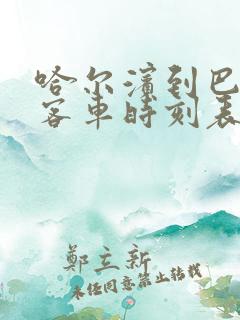 哈尔滨到巴
客车时刻表
郑立新
未经同意禁止转载